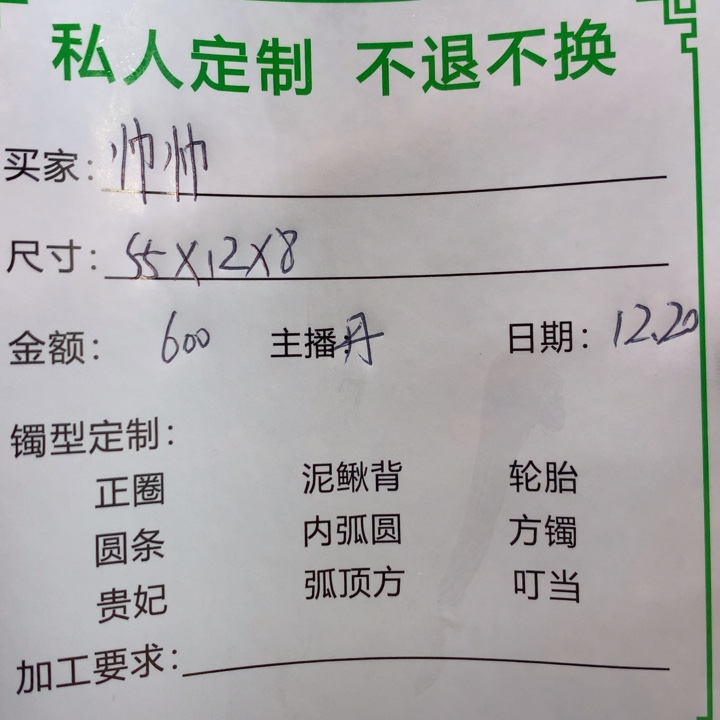 私人定制 不退不换
买家：帅帅
尺寸：55X12X8
金额：600 主播丹 日期：12.20
镯型定制：
正圈 泥鳅背 轮胎
圆条 内弧圆 方镯
贵妃 弧顶方 叮当
加工要求：